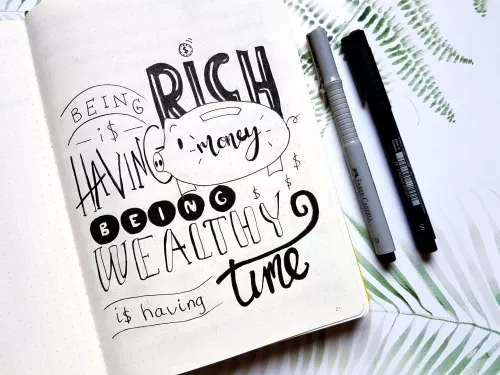 BEING RICH
i$
HAVING money
BEING
WEALTHY
i$ having time
FABER-CASTELL